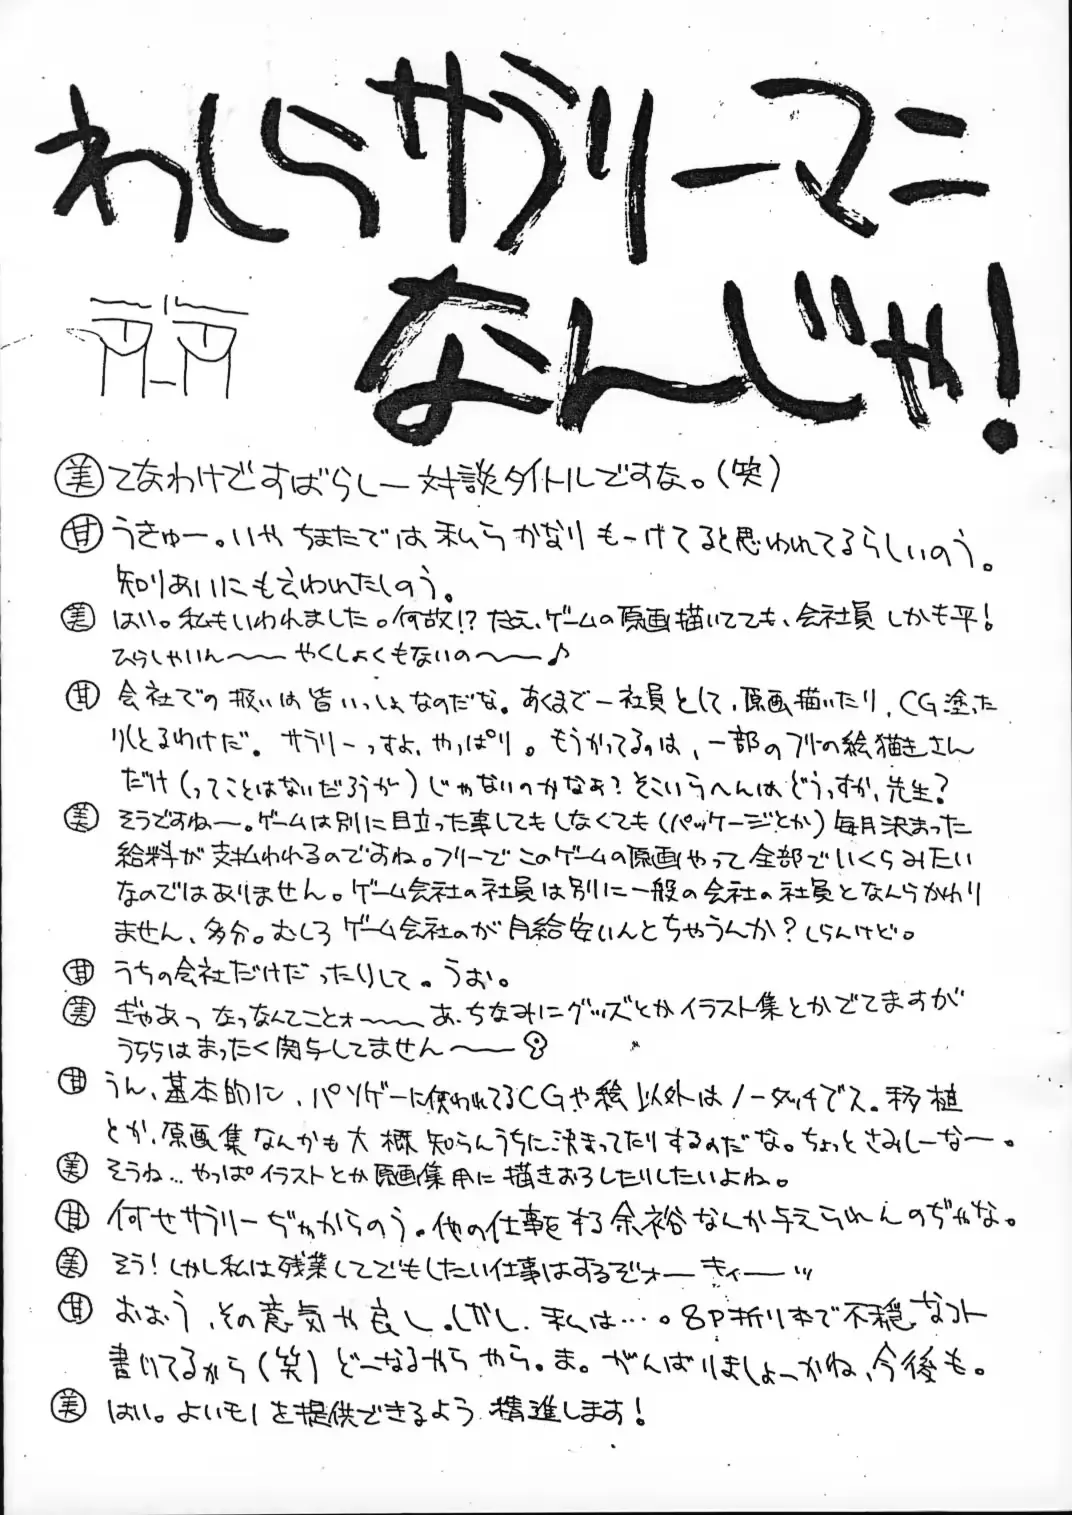 わしらサラリーマン
なんじゃ!
美 てなわけですばらしー対談タイトルですな。(笑)
甘 うきゅー。いや ちまたでは 私ら かなり もーけてると思われてるらしいのう。
知りあいにもいわれたしのう。
美 はい。私もいわれました。何故!? たとえ、ゲームの原画描いてても、会社員 しかも平!
ひらしゃいん〜〜 やくしょくもないの〜〜♪
甘 会社での 扱いは 皆いっしょなのだな。あくまで一社員として、原画描いたり、CG塗った
りしとるわけだ。サラリーっすよ、やっぱり。もうかってるのは、一部のフリーの絵描きさん
だけ(ってことはないだろうが)じゃないのかなぁ? そこいらへんはどうっすか、先生?
美 そうですね〜。ゲームは別に目立った事しても しなくても(パッケージとか)毎月決まった
給料が支払われるのですね。フリーで このゲームの原画やって 全部で いくら みたい
なのではありません。ゲーム会社の社員は別に一般の会社の社員となんらかわり
ません、多分。むしろ ゲーム会社のが 月給安いんとちゃうんか? しらんけど。
甘 うちの会社だけだったりして。うお。
美 ぎゃあっ なっなんてことォ〜〜 あ、ちなみにグッズとかイラスト集とかでてますが
うちらはまったく関与してません〜〜
甘 うん、基本的に、パソゲーに使われてるCGや絵 以外は ノータッチでス。移植
とか、原画集なんかも 大概 知らんうちに決まってたりするのだな。ちょっとさみしーなー。
美 そうね… やっぱイラストとか原画集用に 描きおろししたりしたいよね。
甘 何せサラリーぢゃからのう。他の仕事をする余裕なんか与えられんのぢゃな。
美 そう! しかし私は残業してでもしたい仕事はするぞォー キィーッ
甘 おおう、その意気や良し。しかし、私は…。8P折り本で不穏なコト
書いてるから(笑) どーなるやらやら。ま。がんばりましょーかね、今後も。
美 はい。よいモノを提供できるよう 精進します!